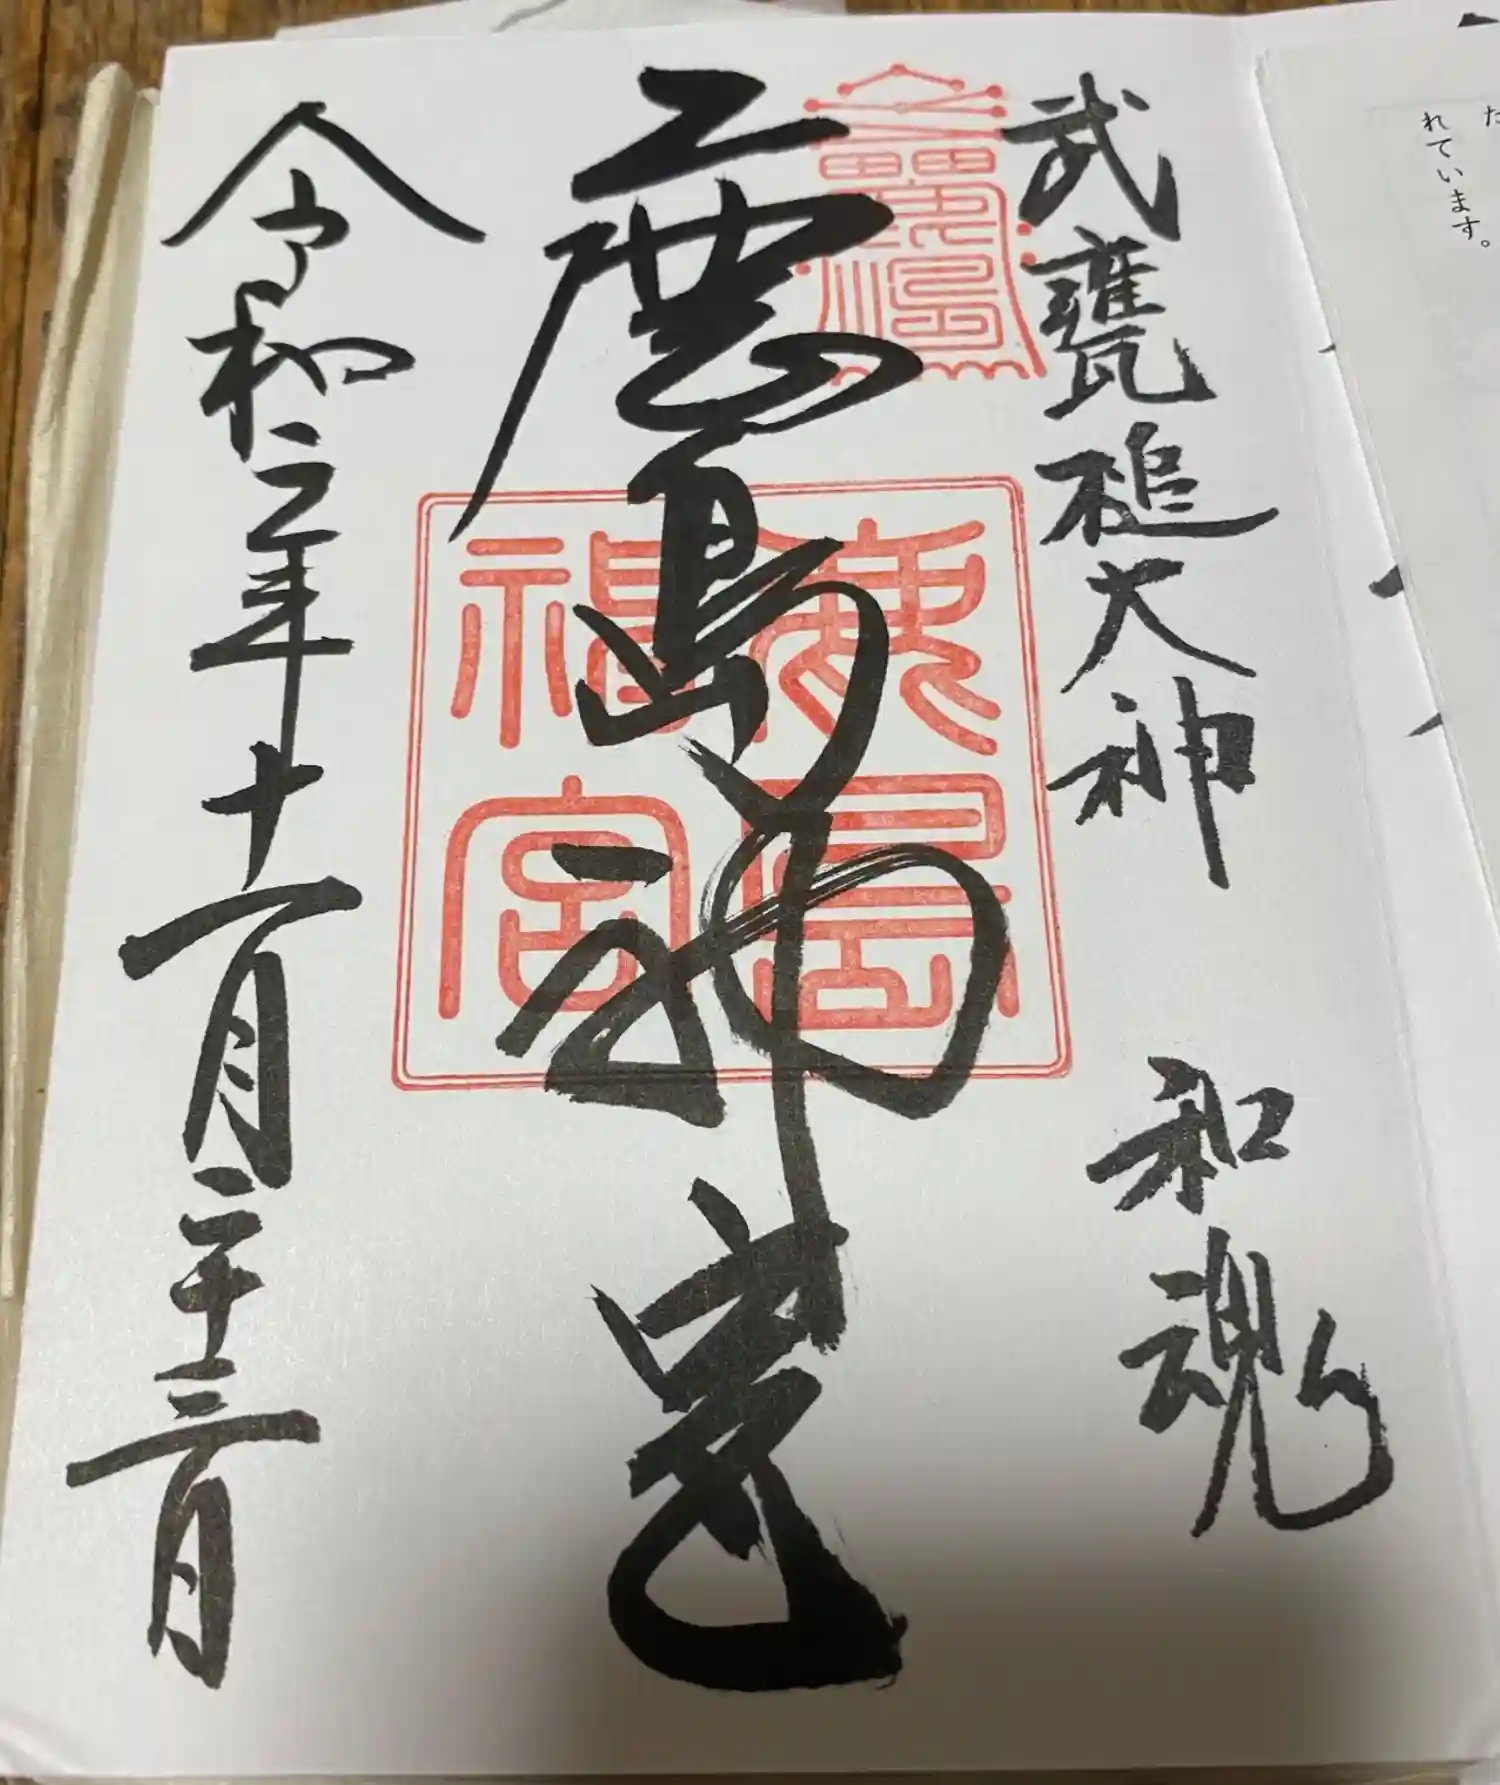 武甕槌大神 和魂
鹿島神宮
令和二年十一月二十三日
た
れています。